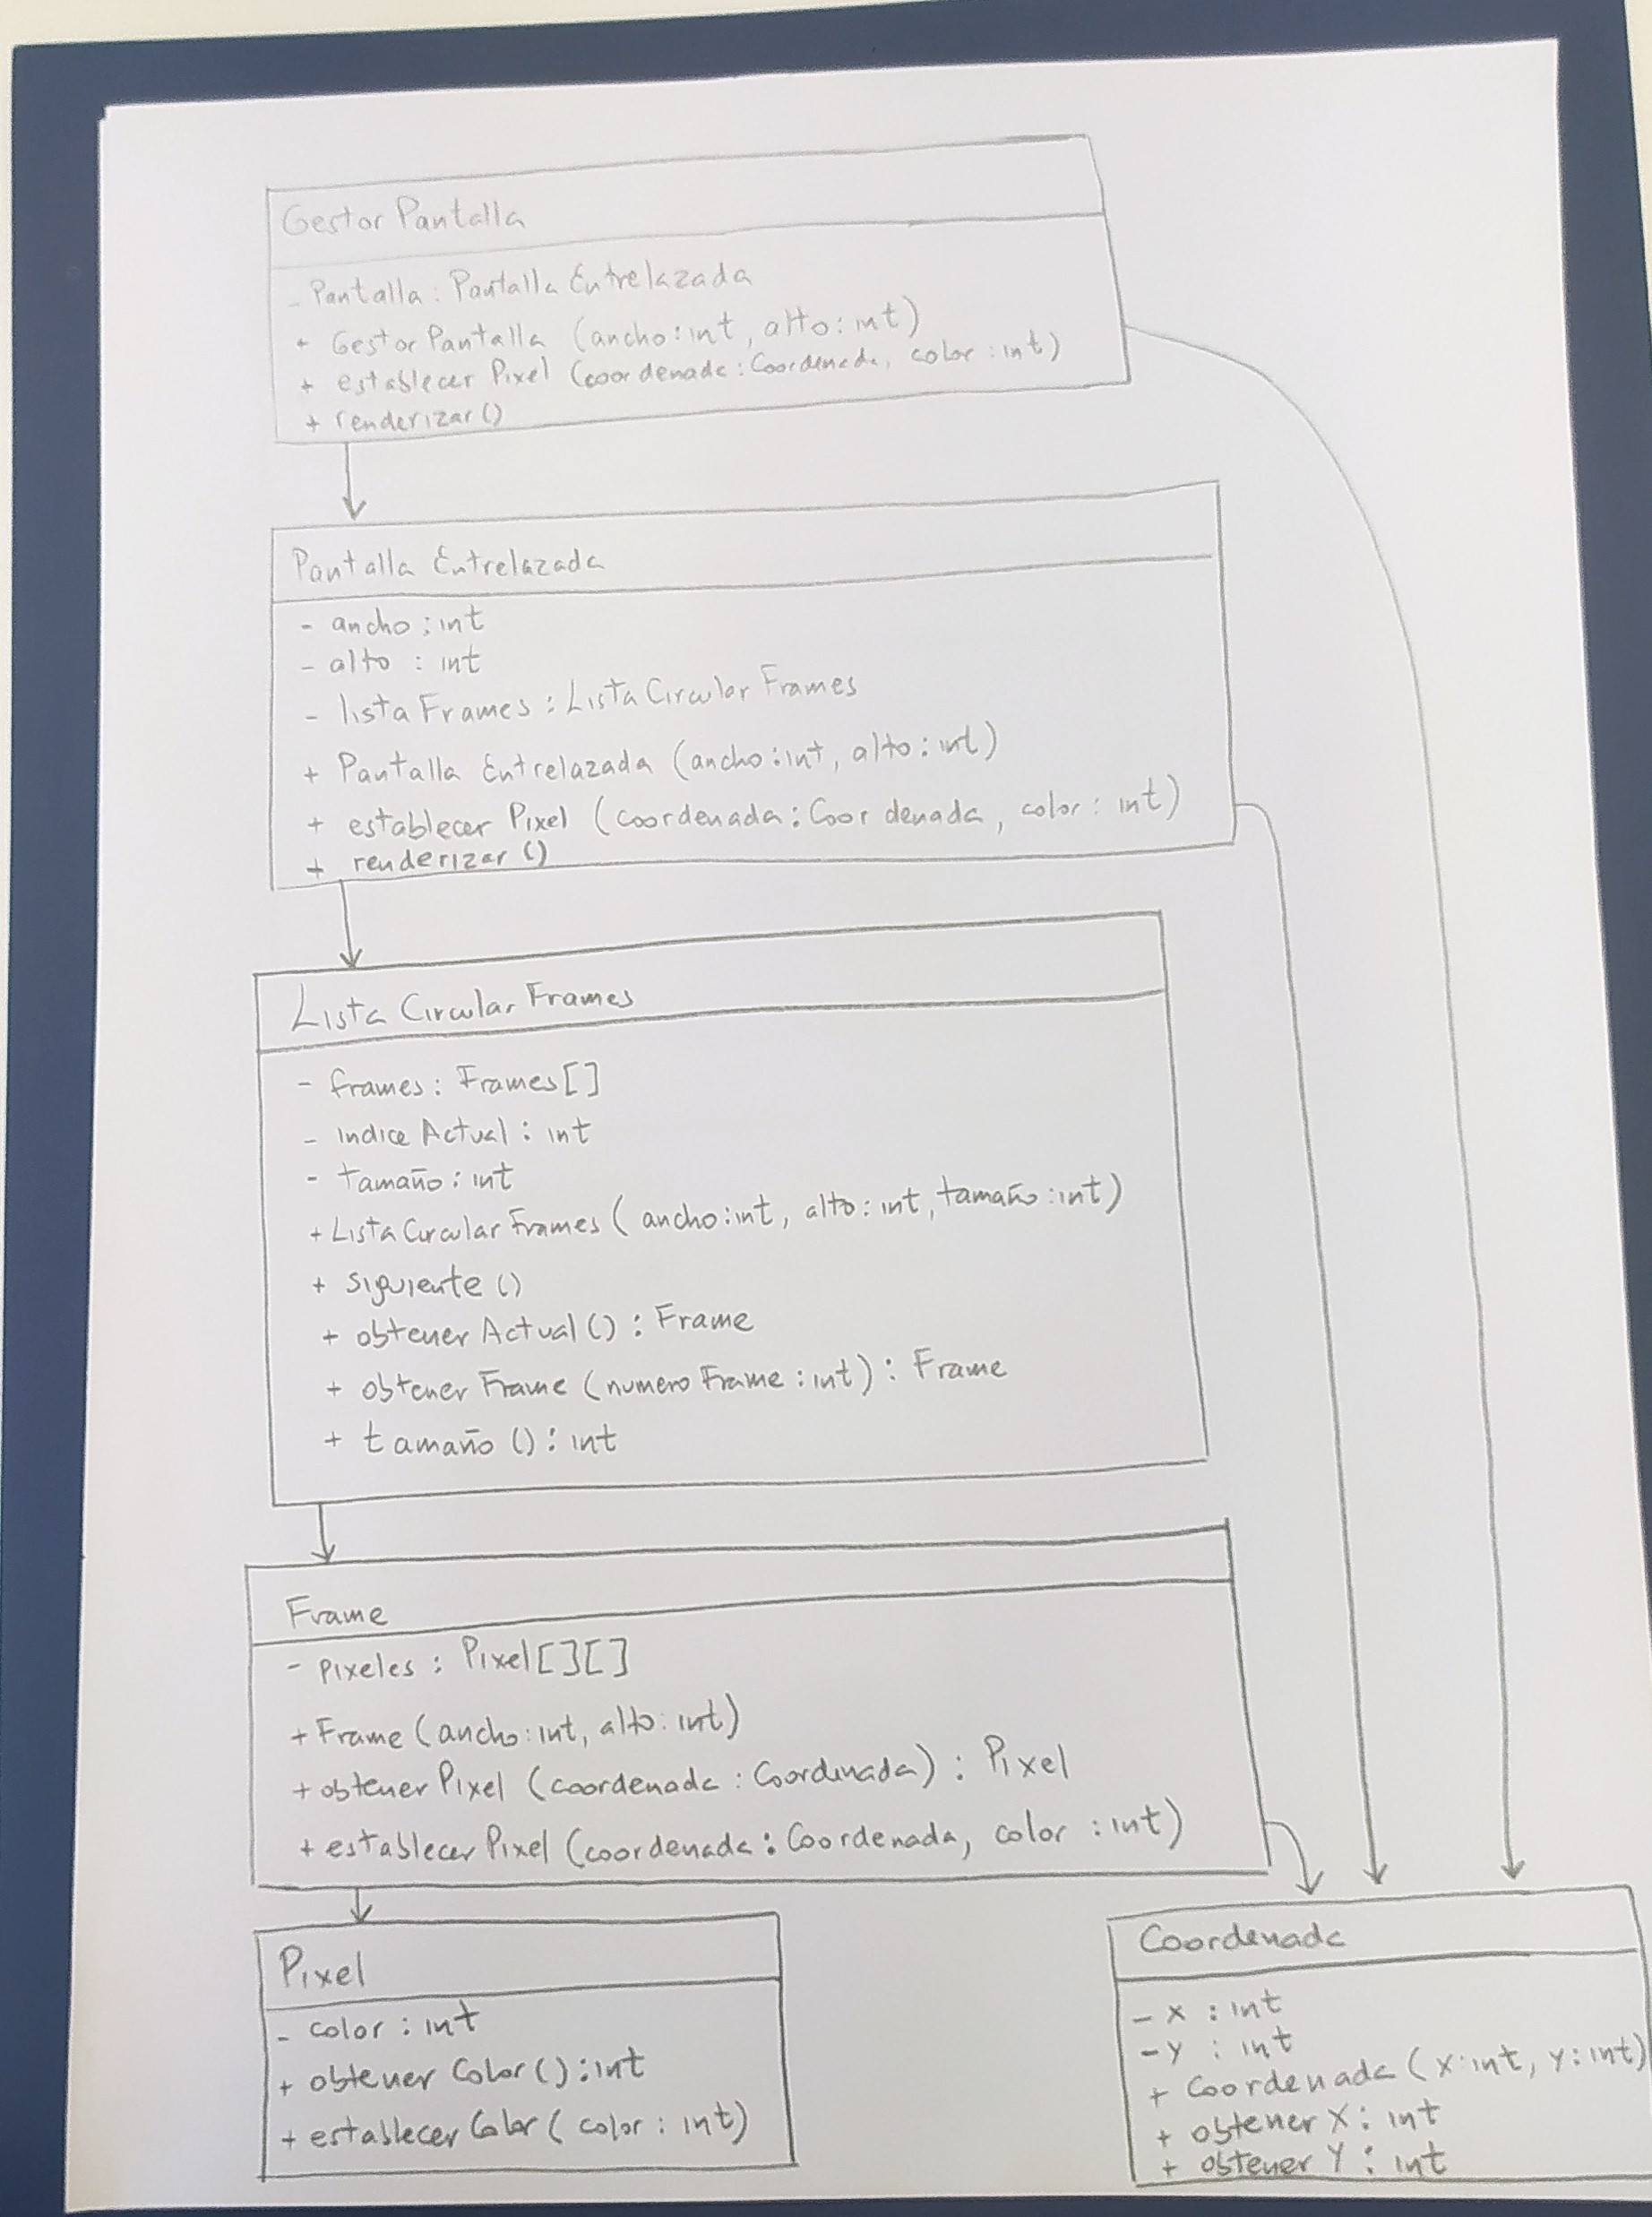 Gestor Pantalla
- Pantalla : Pantalla Entrelazada
+ Gestor Pantalla (ancho: int, alto: int)
+ establecer Pixel (coordenada: Coordenada, color: int)
+ renderizar ()
Pantalla Entrelazada
- ancho : int
- alto : int
- lista Frames : Lista Circular Frames
+ Pantalla Entrelazada (ancho: int, alto: int)
+ establecer Pixel (coordenada: Coordenada, color: int)
+ renderizar ()
Lista Circular Frames
- frames: Frames [ ]
- Indice Actual : int
- tamaño : int
+ Lista Circular Frames (ancho: int, alto: int, tamaño: int)
+ siguiente ()
+ obtener Actual () : Frame
+ obtener Frame (numero Frame : int) : Frame
+ tamaño () : int
Frame
- pixeles : Pixel [ ] [ ]
+ Frame (ancho: int, alto: int)
+ obtener Pixel (coordenada : Coordenada) : Pixel
+ establecer Pixel (coordenada : Coordenada, color : int)
Pixel
- color : int
+ obtener Color () : int
+ establecer Color ( color : int)
Coordenada
- x : int
- y : int
+ Coordenada (x: int, y: int)
+ obtener X : int
+ obtener Y : int